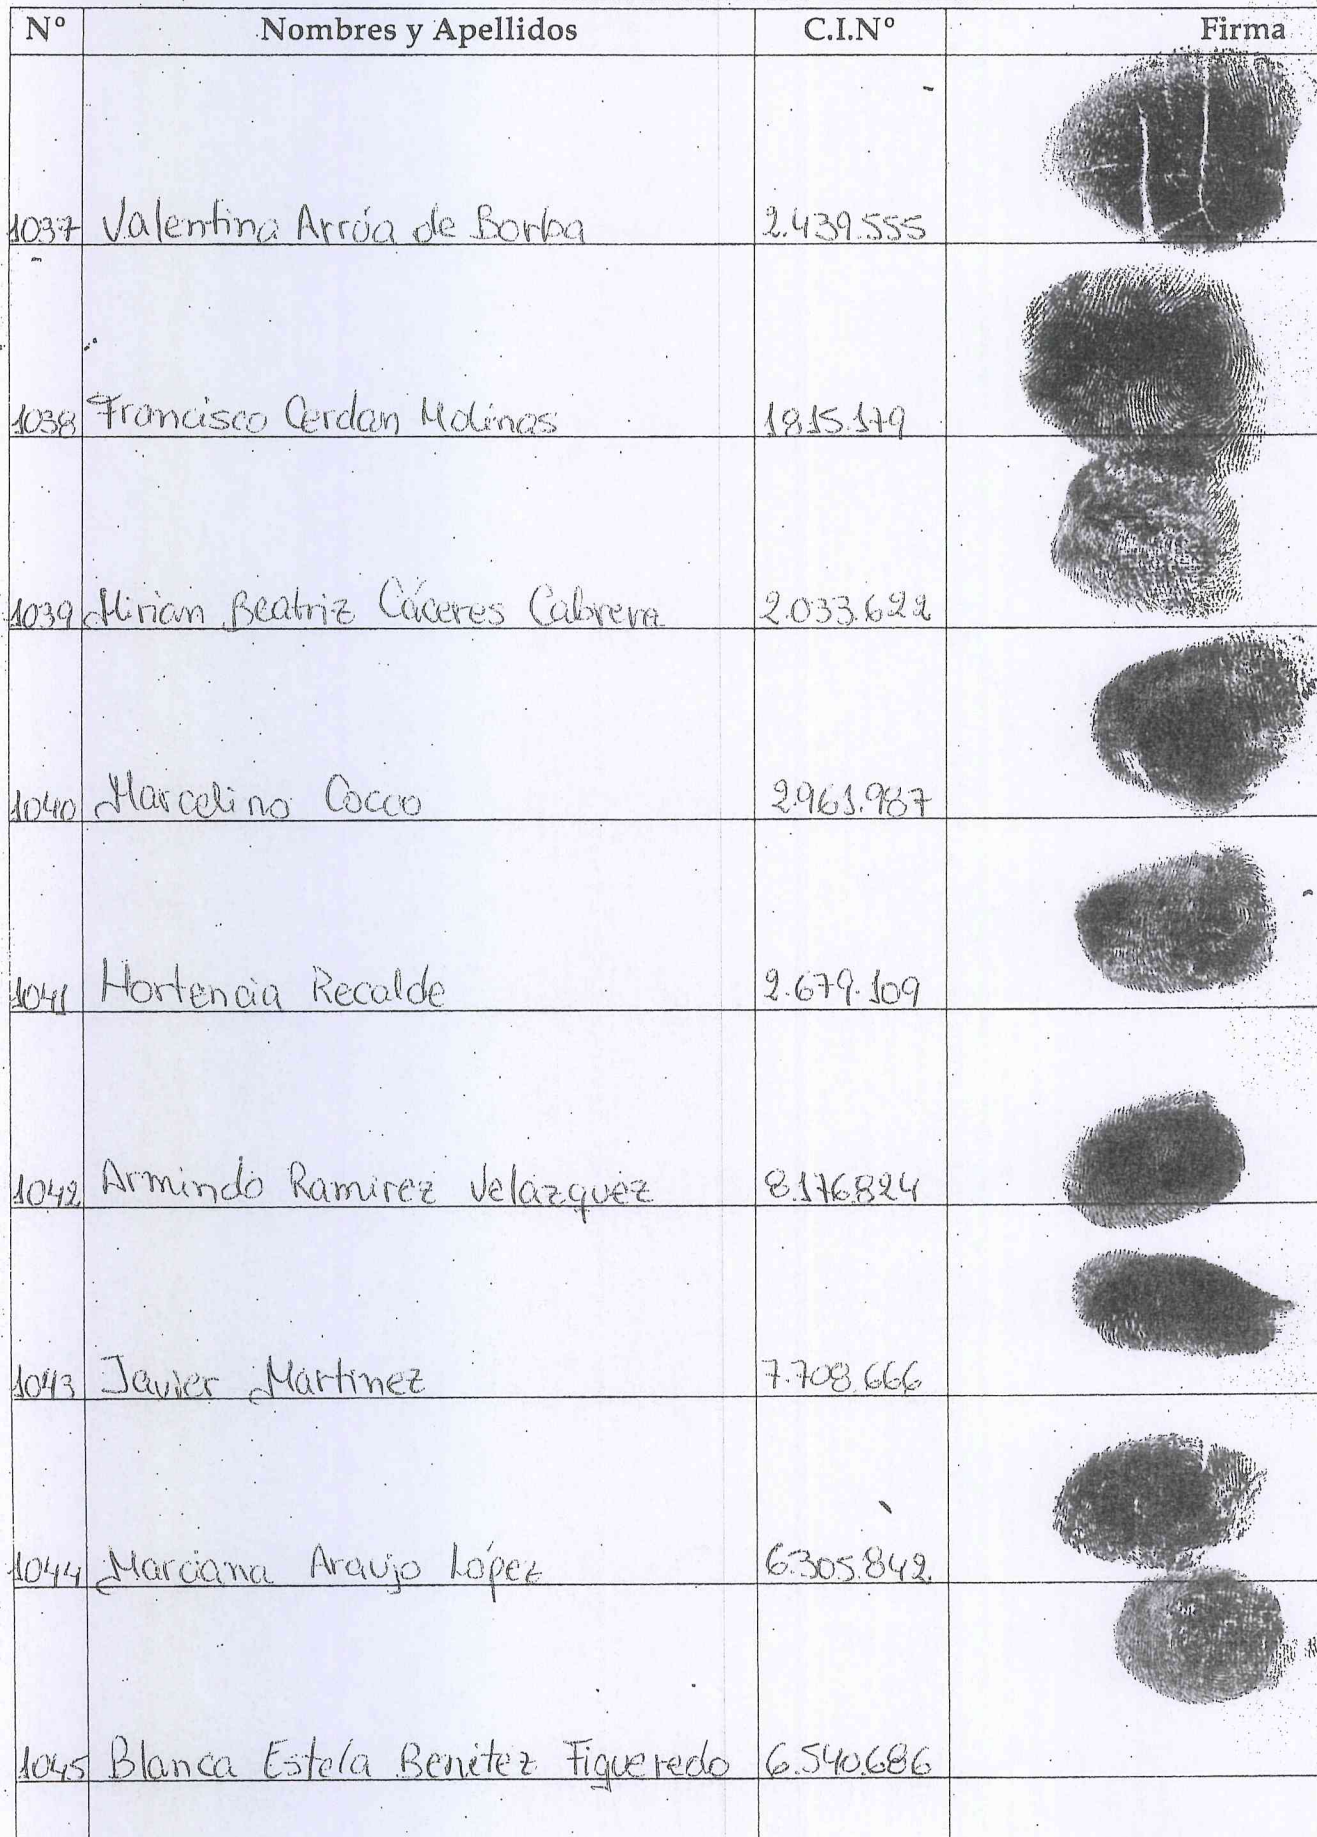 Nº Nombres y Apellidos C.I.Nº Firma
1037 Valentina Arrúa de Borba 2.439.555
1038 Francisco Cerdan Molinas 1.815.179
1039 Mirian Beatriz Cáceres Cabrera 2.033.622
1040 Marcelino Cocco 2.961.987
1041 Hortencia Recalde 2.679.109
1042 Armindo Ramirez Velázquez 8.176.824
1043 Javier Martinez 7.708.666
1044 Marciana Araujo López 6.305.842
1045 Blanca Estela Benitez Figueredo 6.540.686